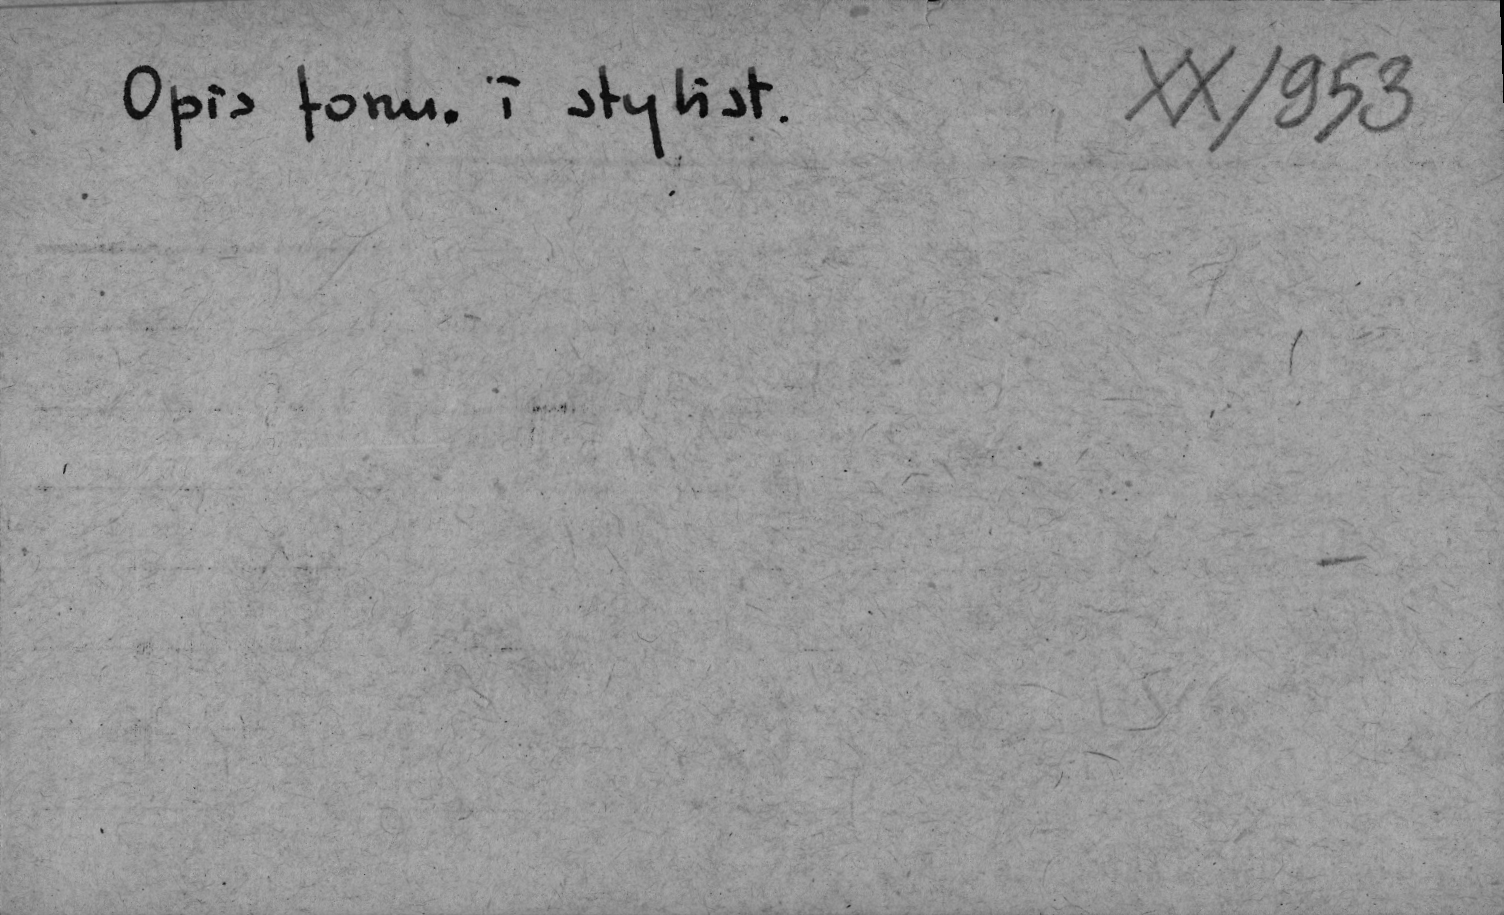 Opis form. i stylist. XX/953